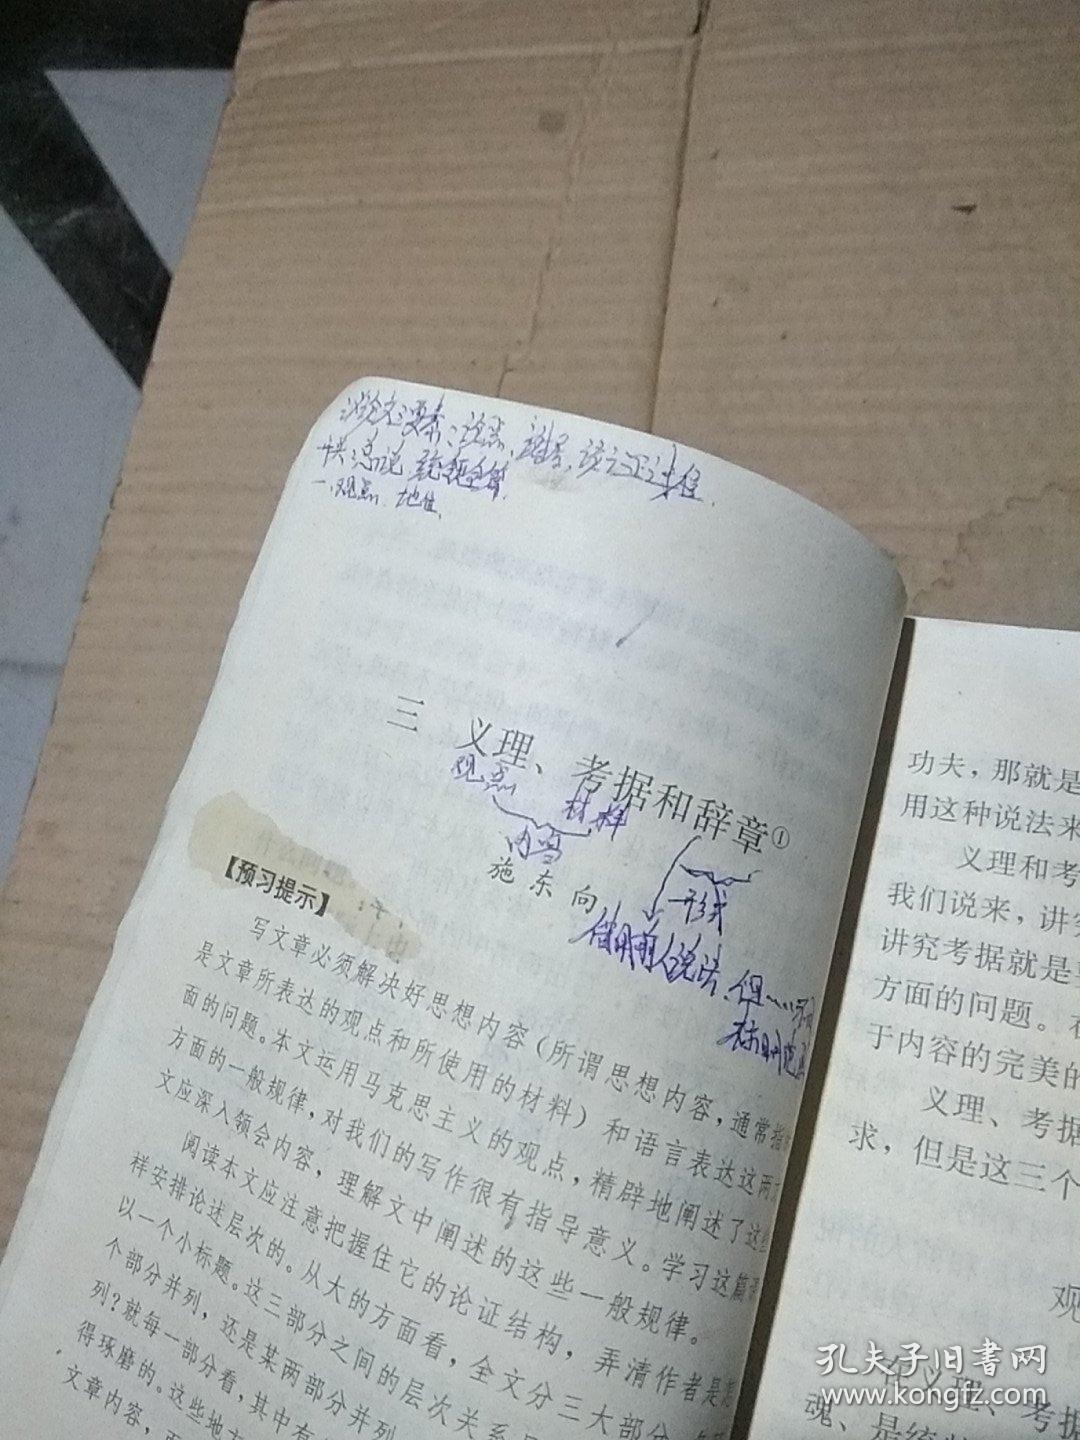 开头:总说 统领全篇.
一.观点 地位.
三 义理、考据和辞章①
观点 材料
内容
形式
施东向
借用前人说法.但……
【预习提示】
写文章必须解决好思想内容(所谓思想内容,通常指
是文章所表达的观点和所使用的材料)和语言表达这两方
面的问题。本文运用马克思主义的观点,精辟地阐述了这些
方面的一般规律,对我们的写作很有指导意义。学习这篇
文应深入领会内容,理解文中阐述的这些一般规律。
阅读本文应注意把握住它的论证结构,弄清作者是怎
样安排论述层次的。从大的方面看,全文分三大部分,
以一个小标题。这三部分之间的层次关系
个部分并列,还是某两部分并列
列?就每一部分看,其中有
得琢磨的。这些地方
文章内容,
功夫,那就是
用这种说法来
义理和考
我们说来,讲究
讲究考据就是
方面的问题。
于内容的完美的
义理、考据
求,但是这三个
观
在义理、考据
魂、是统
孔夫子旧书网
www.kongfz.com